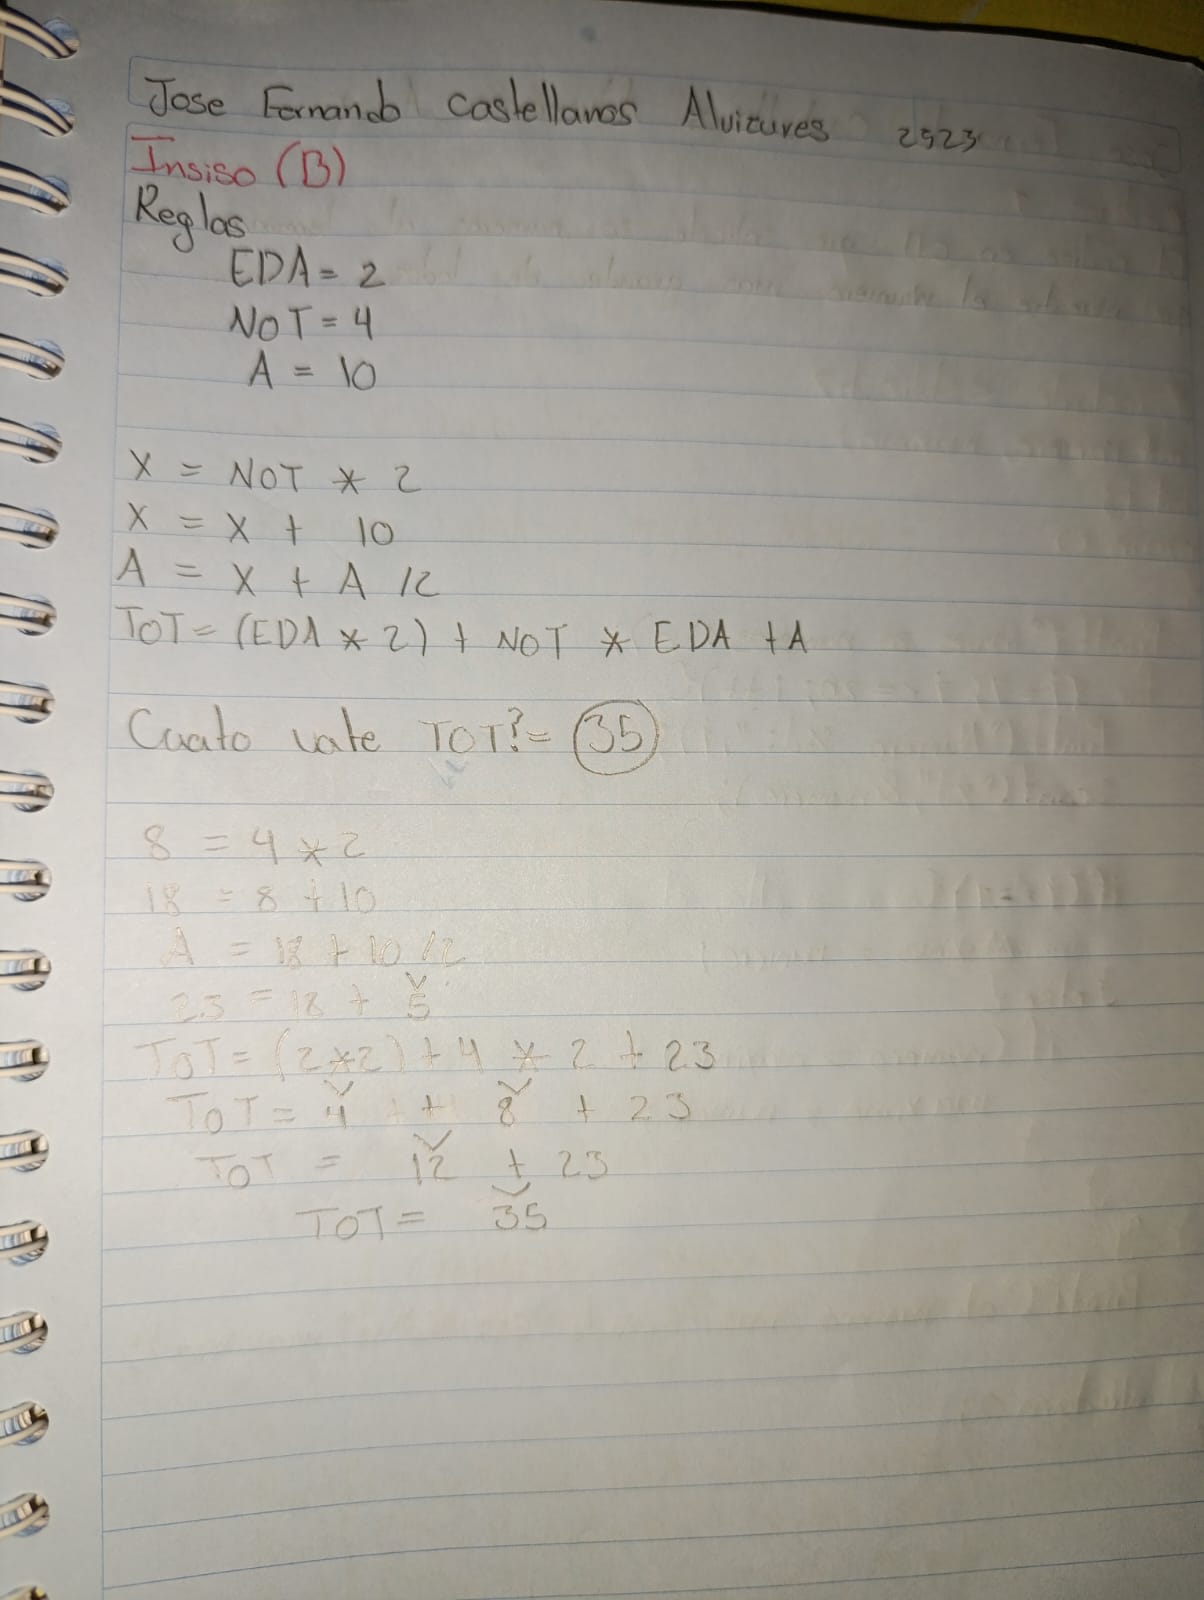 Jose Fernando Castellanos Alvizures 2523
Insiso (B)
Reglas
EDA = 2
NOT = 4
A = 10
X = NOT * 2
X = X + 10
A = X + A /2
TOT = (EDA * 2) + NOT * EDA + A
Cuato vale TOT? = 35
8 = 4 * 2
18 = 8 + 10
A = 18 + 10 /2
23 = 18 + 5
TOT = (2*2) + 4 * 2 + 23
TOT = 4 + 8 + 23
TOT = 12 + 23
TOT = 35